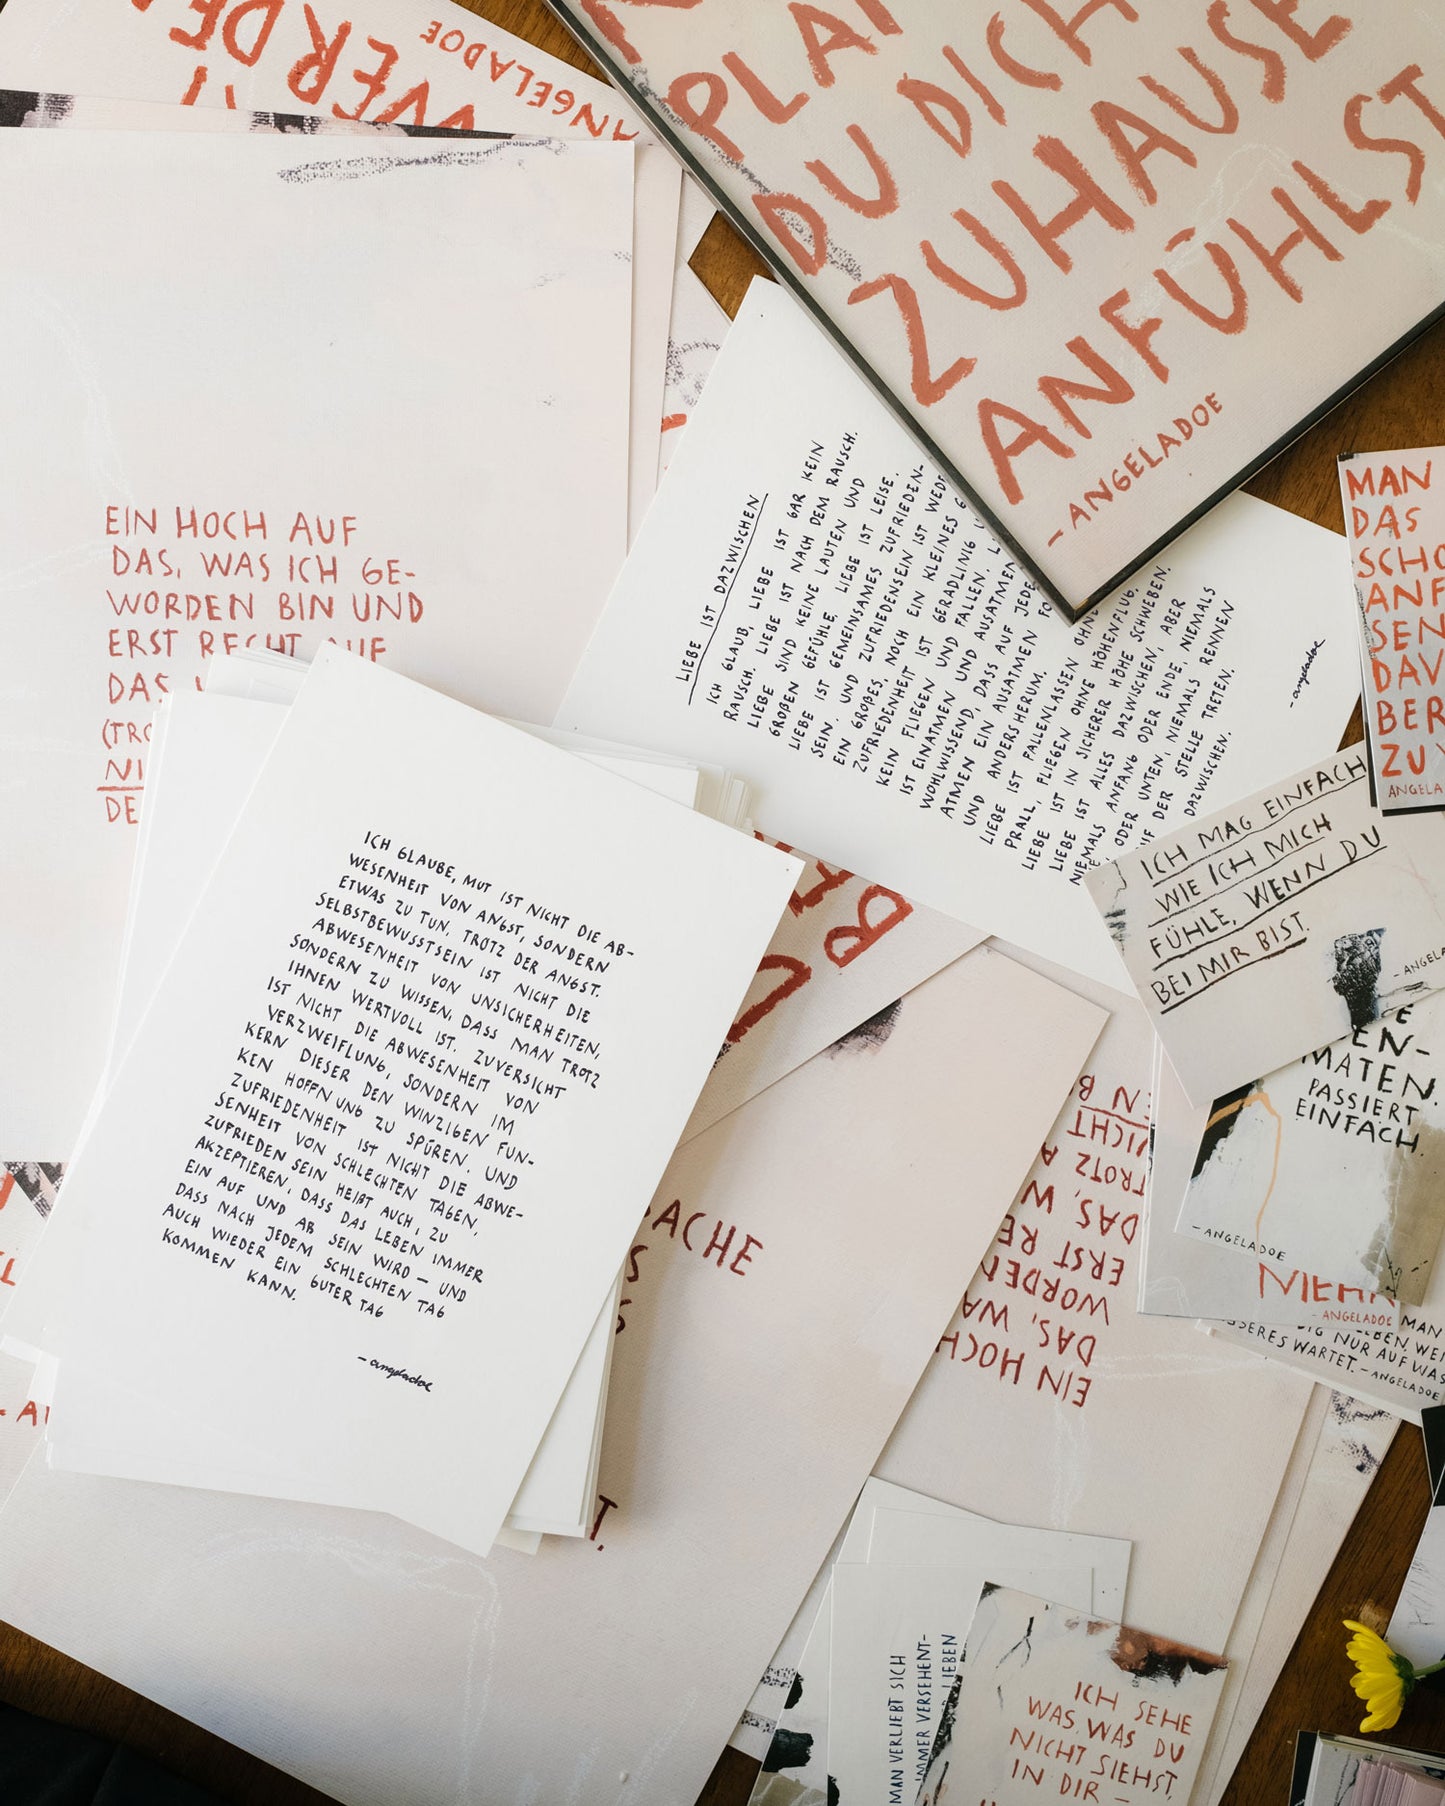 WERDE
ANGELADOE
DU DICH
ZUHAUSE
ANFÜHLST
- ANGELADOE
EIN HOCH AUF
DAS, WAS ICH GE-
WORDEN BIN UND
ERST RECHT AUF
DAS,
LIEBE IST DAZWISCHEN
ICH GLAUB, LIEBE IST GAR KEIN
RAUSCH. LIEBE IST NACH DEM RAUSCH.
LIEBE SIND KEINE LAUTEN UND
GROßEN GEFÜHLE, LIEBE IST LEISE.
LIEBE IST GEMEINSAMES ZUFRIEDEN-
SEIN. UND ZUFRIEDENSEIN IST WEDER
EIN GROßES, NOCH EIN KLEINES
ZUFRIEDENHEIT IST GERADLINIG
KEIN FLIEGEN UND FALLEN.
IST EINATMEN UND AUSATMEN
WOHLWISSEND, DASS AUF JEDE
ATMEN EIN AUSATMEN
UND ANDERSHERUM.
LIEBE IST FALLENLASSEN OHNE
PRALL, FLIEGEN OHNE HÖHENFLUG.
LIEBE IST IN SICHERER HÖHE SCHWEBEN.
LIEBE IST ALLES DAZWISCHEN, ABER
NIEMALS ANFANG ODER ENDE, NIEMALS
ODER UNTEN, NIEMALS RENNEN
AUF DER STELLE TRETEN.
DAZWISCHEN.
- angeladoe
MAN
DAS
ZU
ICH MAG EINFACH
WIE ICH MICH
FÜHLE, WENN DU
BEI MIR BIST.
PASSIERT
EINFACH.
- ANGELADOE
- ANGELADOE
MAN
NUR AUF WAS
WARTET. - ANGELADOE
ICH GLAUBE, MUT IST NICHT DIE AB-
WESENHEIT VON ANGST, SONDERN
ETWAS ZU TUN, TROTZ DER ANGST.
SELBSTBEWUSSTSEIN IST NICHT DIE
ABWESENHEIT VON UNSICHERHEITEN,
SONDERN ZU WISSEN, DASS MAN TROTZ
IHNEN WERTVOLL IST. ZUVERSICHT
IST NICHT DIE ABWESENHEIT VON
VERZWEIFLUNG, SONDERN IM
KERN DIESER DEN WINZIGEN FUN-
KEN HOFFNUNG ZU SPÜREN. UND
ZUFRIEDENHEIT IST NICHT DIE ABWE-
SENHEIT VON SCHLECHTEN TAGEN,
ZUFRIEDEN SEIN HEIßT AUCH, ZU
AKZEPTIEREN, DASS DAS LEBEN IMMER
EIN AUF UND AB SEIN WIRD — UND
DASS NACH JEDEM SCHLECHTEN TAG
AUCH WIEDER EIN GUTER TAG
KOMMEN KANN.
- angeladoe
EIN HOCH
DAS, WA
WORDEN
ERST RE
DAS, W
TROTZ A
NICHT
MAN VERLIEBT SICH
IMMER VERSEHENT-
LIEBEN
ICH SEHE
WAS, WAS DU
NICHT SIEHST,
IN DIR —